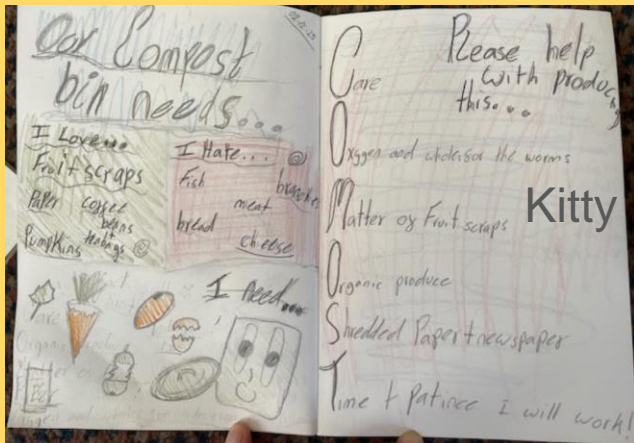 02.12.25
Our Compost
bin needs...
I Love...
Fruit scraps
Paper coffee
beans
Pumpkins teabags
I Hate...
Fish
branches
meat
bread
cheese
I need...
Please help
with producing
this...
Care
Oxygen and whole for the worms
Matter of Fruit scraps
Organic produce
Shredded Paper + newspaper
Time + Patince I will work!
Kitty